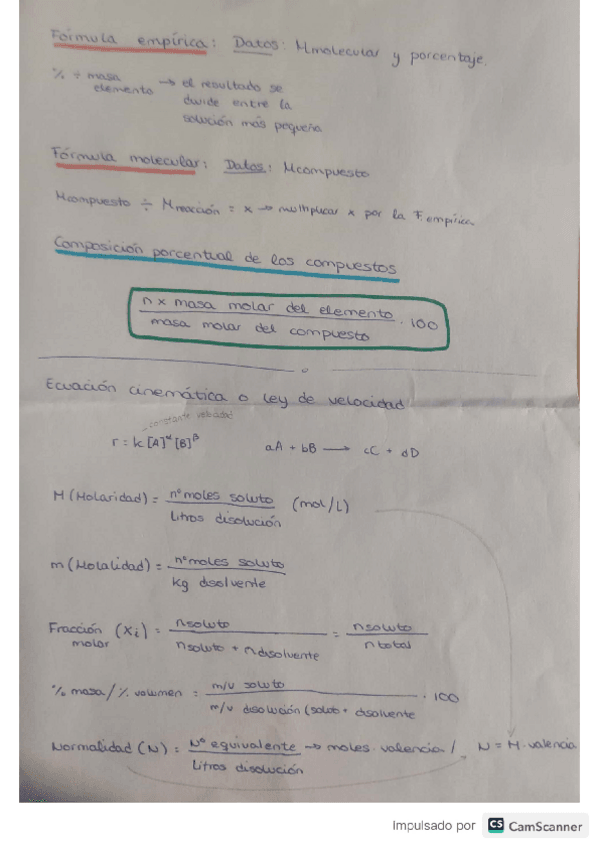 Fórmula empírica: Datos: Mmolecular y porcentaje.
% ÷ masa elemento → el resultado se
divide entre la
solución más pequeña
Fórmula molecular: Datos: Mcompuesto
Mcompuesto ÷ Mreacción = x → multiplicar x por la F. empírica
Composición porcentual de los compuestos
n x masa molar del elemento
masa molar del compuesto
· 100
Ecuación cinemática o ley de velocidad
constante velocidad
r = k [A]^α [B]^β aA + bB → cC + dD
M (Molaridad) = nº moles soluto / Litros disolución (mol/L)
m (Molalidad) = nº moles soluto / kg disolvente
Fracción molar (Xi) = nsoluto / nsoluto + ndisolvente = nsoluto / ntotal
% masa / % volumen = m/v soluto / m/v disolución (soluto + disolvente · 100
Normalidad (N) = Nº equivalente / Litros disolución → moles · valencia / N = M · valencia
Impulsado por CS CamScanner